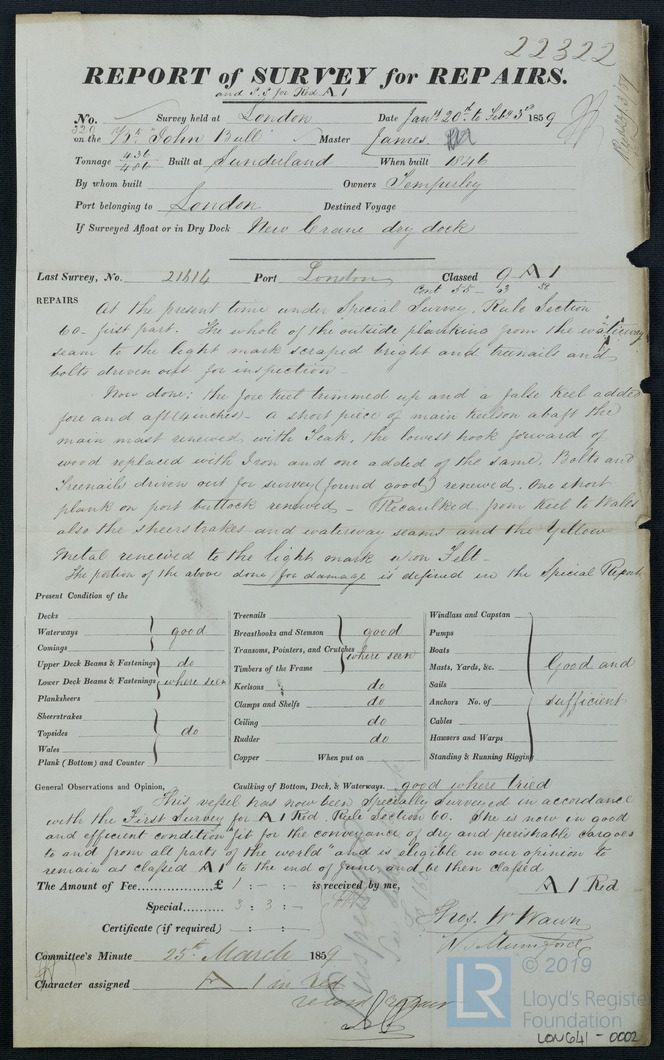 22322
REPORT of SURVEY for REPAIRS.
and S.S for Red A 1
No. Survey held at London Date Jany 20th to Feby 3rd 1859
320
on the Bk "John Bull" Master James
Tonnage 436/486 Built at Sunderland When built 1846
By whom built Owners Temperley
Port belonging to London Destined Voyage
If Surveyed Afloat or in Dry Dock New Crane dry dock
Last Survey, No. 21414 Port London Classed 9 A 1
Cont 55 - 
REPAIRS
At the present time under Special Survey, Rule Section
60 - first part. The whole of the outside planking from the waterway
seam to the light mark scraped bright and treenails and
bolts driven out for inspection -
Now done; the fore foot trimmed up and a false keel added
fore and aft (4 inches) - a short piece of main keelson abaft the
main mast renewed with Teak, the lowest hook forward of
wood replaced with Iron and one added of the same, Bolts and
Treenails driven out for survey (found good) renewed. One short
plank on port buttock renewed - Recaulked from Keel to Wales
also the sheerstrakes and waterway seams and the Yellow
Metal renewed to the light mark upon Felt -
The portion of the above done for damage is defined in the Special Report
Present Condition of the
Decks
Waterways good
Comings
Upper Deck Beams & Fastenings do
Lower Deck Beams & Fastenings where seen
Planksheers
Sheerstrakes
Topsides do
Wales
Plank (Bottom) and Counter
Treenails
Breasthooks and Stemson good
Transoms, Pointers, and Crutches where seen
Timbers of the Frame
Keelsons do
Clamps and Shelfs do
Ceiling do
Rudder do
Copper When put on
Windlass and Capstan
Pumps
Boats
Masts, Yards, &c. Good and
Sails
Anchors No. of sufficient
Cables
Hawsers and Warps
Standing & Running Rigging
General Observations and Opinion, Caulking of Bottom, Deck, & Waterways. good where tried
This vessel has now been Specially Surveyed in accordance
with the First Survey for A 1 Red. Rule Section 60. She is now in good
and efficient condition "fit for the conveyance of dry and perishable cargoes
to and from all parts of the world" and is eligible in our opinion to
remain as classed A 1 to the end of June, and be then classed
A 1 Red
The Amount of Fee £ 1 : - : - is received by me,
Special 3 : 3 : -
Certificate (if required) - : - : -
Thos. W Wawn
W. Mumford
Committee's Minute 25th March 1859
Character assigned A 1 in Red
© 2019
LR
Lloyd's Register
Foundation
LON641-0002